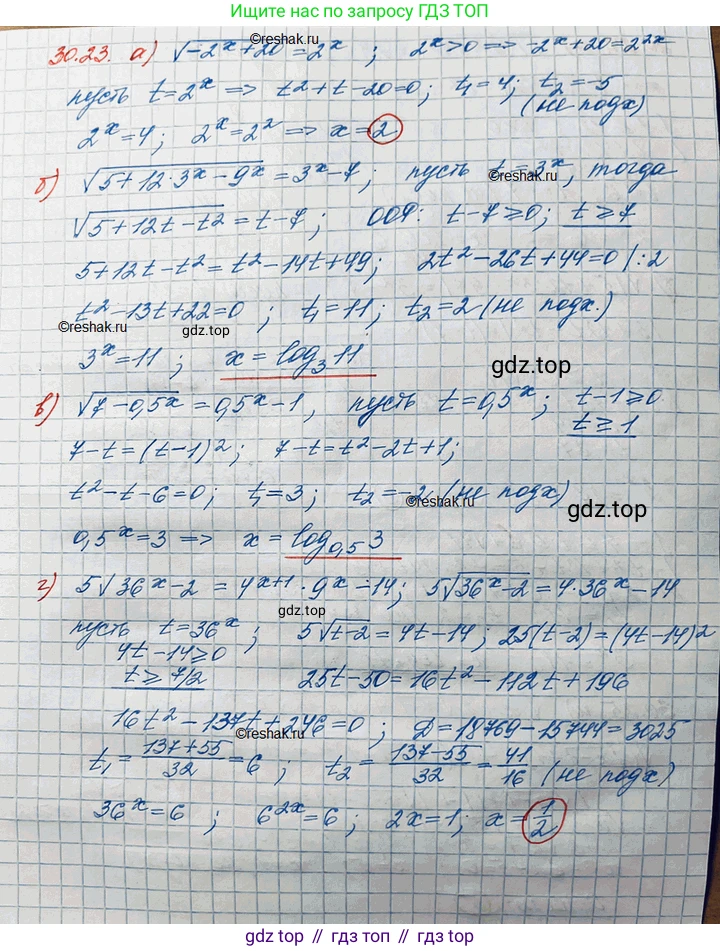 Ищите нас по запросу ГДЗ ТОП
©reshak.ru
30.23. а) √(-2ˣ+20) = 2ˣ ; 2ˣ>0 => -2ˣ+20=2²ˣ
пусть t=2ˣ => t²+t-20=0; t₁=4; t₂=-5
(не подх)
2ˣ=4; 2ˣ=2² => x=2
б) √(5+12·3ˣ-9ˣ) = 3ˣ-7; пусть t=3ˣ, тогда
©reshak.ru
√(5+12t-t²) = t-7; ООФ: t-7≥0; t≥7
5+12t-t²=t²-14t+49; 2t²-26t+44=0 |:2
t²-13t+22=0 ; t₁=11; t₂=2 (не подх.)
©reshak.ru
©reshak.ru
3ˣ=11 ; x=log₃11
gdz.top
в) √(7-0,5ˣ) = 0,5ˣ-1, пусть t=0,5ˣ; t-1≥0
t≥1
7-t=(t-1)²; 7-t=t²-2t+1;
t²-t-6=0; t₁=3; t₂=-2 (не подх)
©reshak.ru
gdz.top
0,5ˣ=3 => x=log₀,₅3
г) 5√(36ˣ-2) = 4ˣ⁺¹·9ˣ-14; 5√(36ˣ-2)=4·36ˣ-14
gdz.top
пусть t=36ˣ; 5√(t-2)=4t-14; 25(t-2)=(4t-14)²
4t-14≥0
t≥7/2 25t-50=16t²-112t+196
16t²-137t+246=0 ; D=18769-15744=3025
©reshak.ru
t₁=(137+55)/32=6 ; t₂=(137-55)/32=41/16 (не подх)
36ˣ=6 ; 6²ˣ=6; 2x=1; x=1/2
gdz top // гдз топ // gdz top